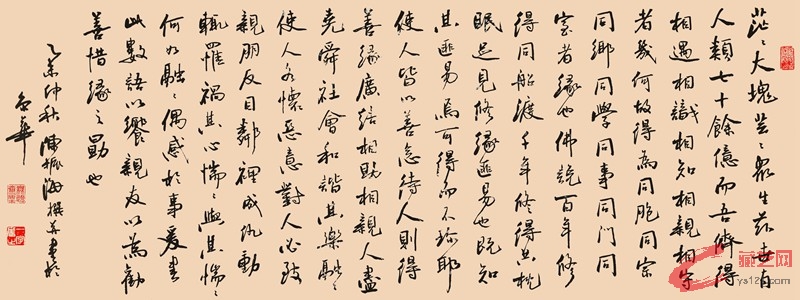 茫〻大塊芸〻眾生茲世有
人類七十餘億而吾儕得
相遇相識相知相親相守
者幾何故得為同胞同宗
同鄉同學同事同門同
室者緣也佛說百年修
得同船渡千年修得共枕
眠足見修緣匪易也既知
其匪易焉可得而不珍耶
使人皆以善念待人則得
善緣廣結相既相親人盡
堯舜社會和諧其樂融〻
使人各懷惡意對人必致
親朋反目鄰裡成仇動
輒罹禍其心惴〻與其惴〻
何如融〻偶感於事爰書
此數語以饗親友以為勸
善惜緣之勖也
乙未仲秋陳振海撰並書於
京華